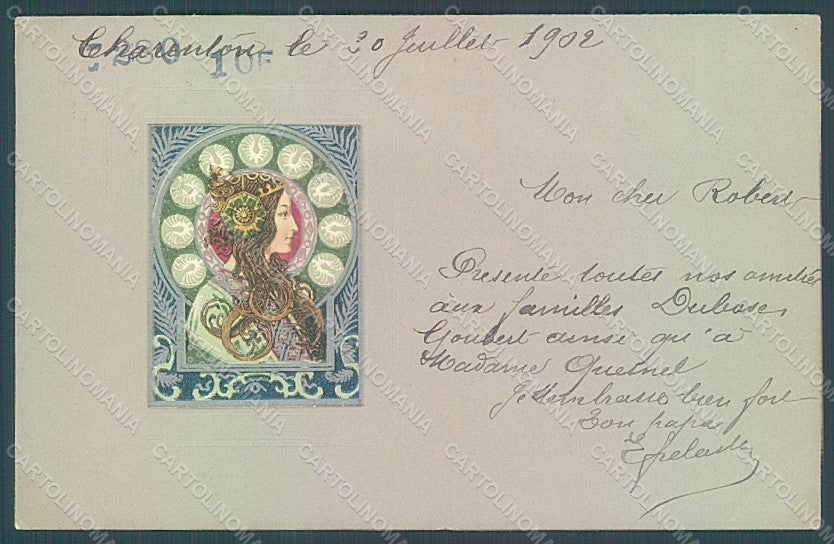 Charenton le 20 Juillet 1902
10F
Mon cher Robert
Presente toutes nos amitiés
aux familles Dubosc
Goubert ainsi qu'à
Madame Quesnel
Je t'embrasse bien fort
Ton papa
CARTOLINOMANIA